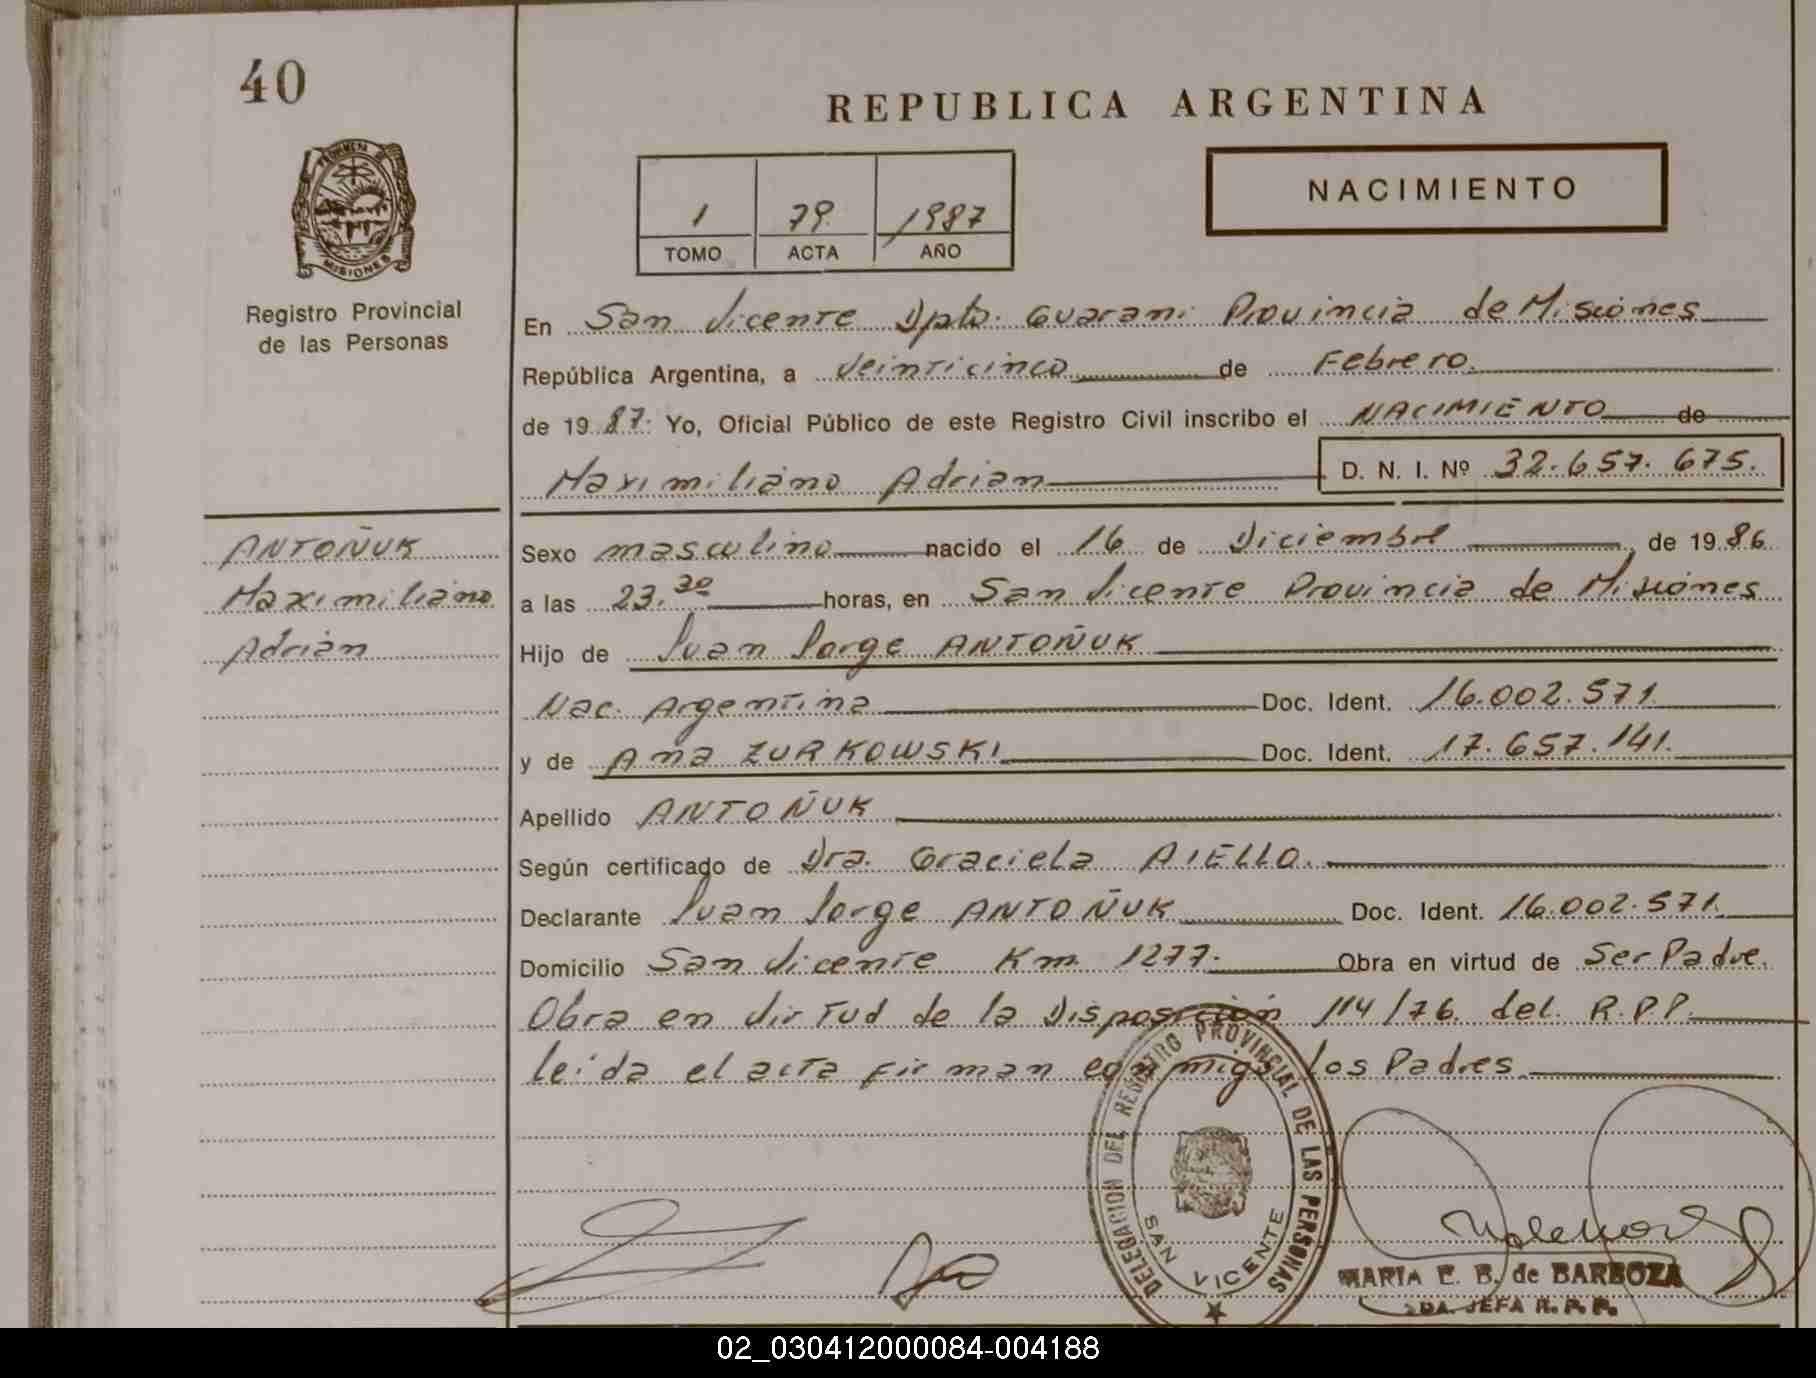 40
REPUBLICA ARGENTINA
PROVINCIA DE
MISIONES
Registro Provincial
de las Personas
1 79 1987
TOMO ACTA AÑO
NACIMIENTO
En San Vicente Dpto. Guarani Provincia de Misiones
República Argentina, a Veinticinco de Febrero.
de 1987. Yo, Oficial Público de este Registro Civil inscribo el NACIMIENTO de
Maximiliano Adrian D. N. I. Nº 32.657.675.
ANTOÑUK
Maximiliano
Adrian
Sexo masculino nacido el 16 de Diciembre de 1986
a las 23.30 horas, en San Vicente Provincia de Misiones
Hijo de Juan Jorge ANTOÑUK
Nac. Argentina Doc. Ident. 16.002.571.
y de Ana ZURKOWSKI Doc. Ident. 17.657.141.
Apellido ANTOÑUK
Según certificado de Dra. Graciela AIELLO.
Declarante Juan Jorge ANTOÑUK Doc. Ident. 16.002.571.
Domicilio San Vicente Km 1277. Obra en virtud de Ser Padre.
Obra en virtud de la Disposición 114/76. del R.P.P.
leída el acta firman conmigo los Padres
DELEGACION DEL REGISTRO PROVINCIAL DE LAS PERSONAS
SAN VICENTE
MARIA E. B. de BARBOZA
2DA. JEFA R. P. P.
02_030412000084-004188